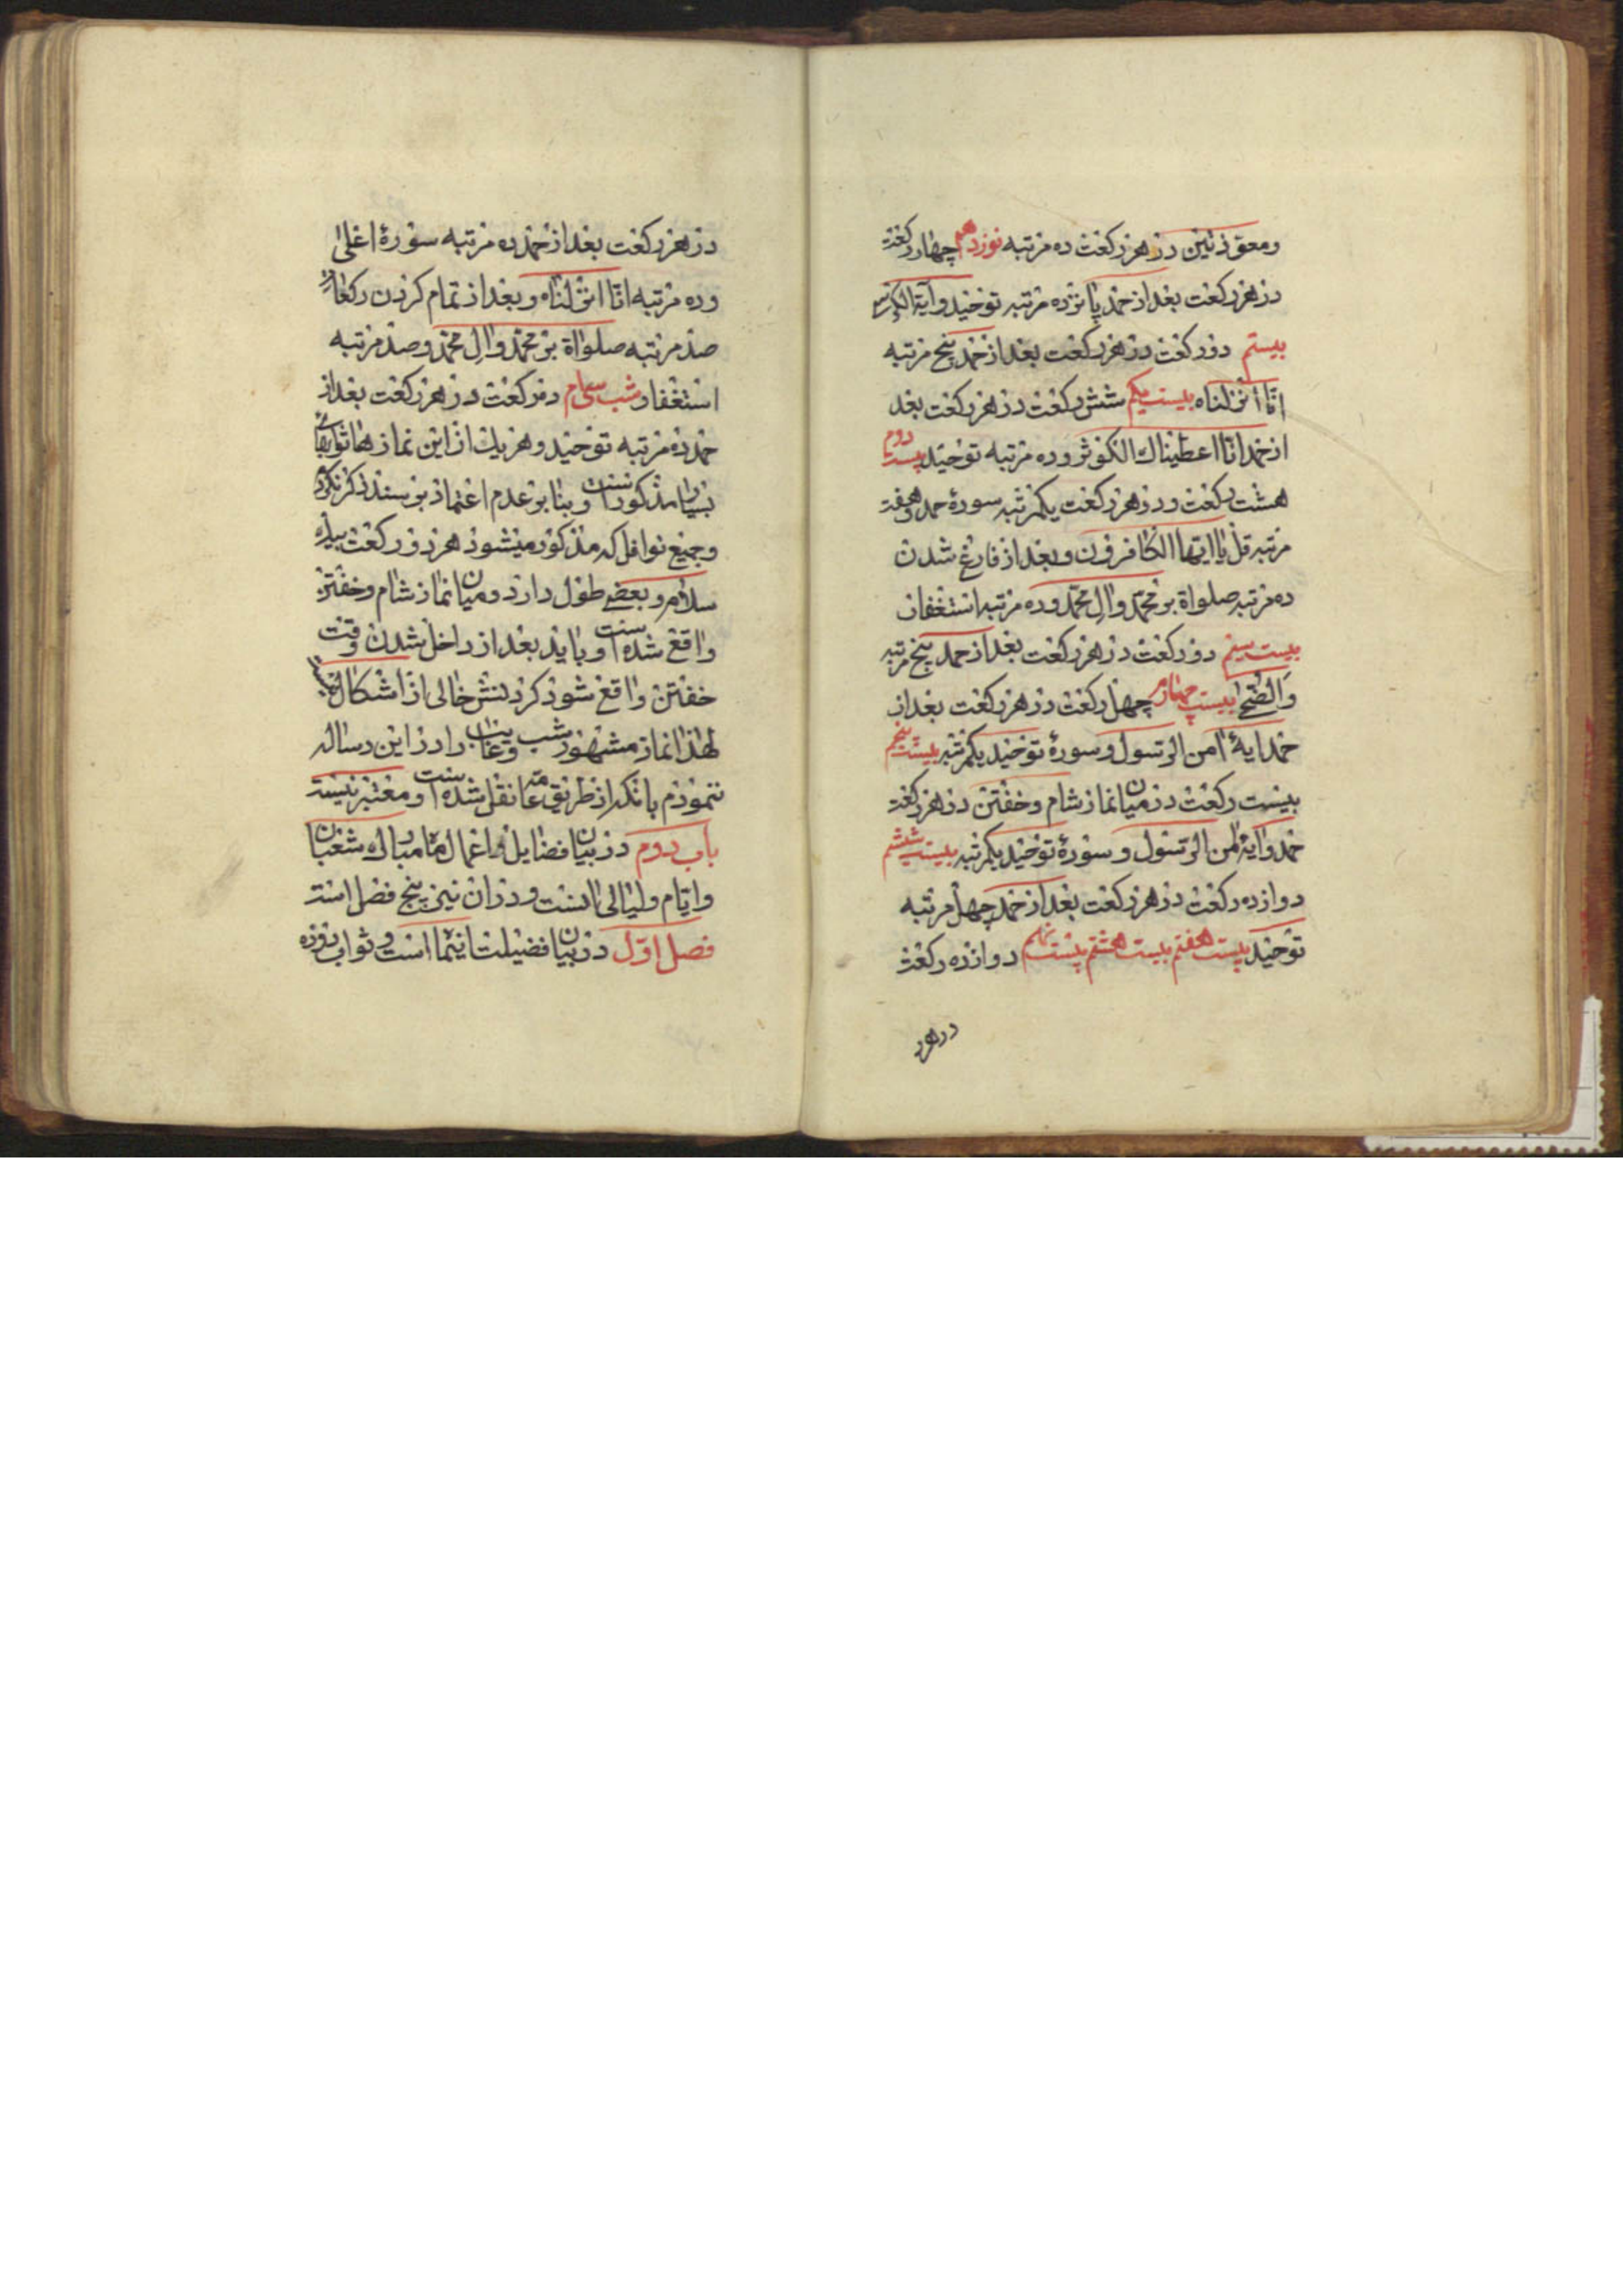 ومعوذتین در هر رکعت ده مرتبه نوزدهم چهار رکعت
در هر رکعت بعد از حمد پانزده مرتبه توحید وآیة الکرسی
بیستم دو رکعت در هر رکعت بعد از حمد پنج مرتبه
انّا انزلناه بیست یکم شش رکعت در هر رکعت بعد
از حمد انّا اعطیناك الکوثر و ده مرتبه توحید بیست دوم
هشت رکعت و در هر رکعت یکمرتبه سورۀ حمد و هفت
مرتبه قل یا ایّها الکافرون و بعد از فارغ شدن
ده مرتبه صلواة بر محمّد وال محمّد و ده مرتبه استغفار
بیست سیم دو رکعت در هر رکعت بعد از حمد پنج مرتبه
والضّحی بیست چهارم چهل رکعت در هر رکعت بعد از
حمد ایۀ امن الرسول و سورۀ توحید یکمرتبه بیست پنجم
بیست رکعت در میان نماز شام وخفتن در هر رکعت
حمد وایۀ امن الرسول و سورۀ توحید یکمرتبه بیست ششم
دوازده رکعت در هر رکعت بعد از حمد چهل مرتبه
توحید بیست هفتم بیست هشتم بیست نهم دوازده رکعت
در هر
در هر رکعت بعد از حمد ده مرتبه سورۀ اعلی
و ده مرتبه انّا انزلناه و بعد از تمام کردن رکعات
صد مرتبه صلواة بر محمّد وال محمّد و صد مرتبه
استغفار و شب سی ام دو رکعت در هر رکعت بعد از
حمد ده مرتبه توحید و هر یك از این نماز ها ثوابهای
بسیار مذکور است و بنا بر عدم اعتماد بر سند ذکر نکرد
و جمیع نوافل که مذکور میشود هر دو رکعت بیك
سلام و بعضی طول دارد و میان نماز شام و خفتن
واقع شده است و باید بعد از داخل شدن وقت
خفتن واقع شود کردنش خالی از اشکال
لهذا نماز مشهور شب رغایب را در این رساله
ننمودم بانکه از طریق عامّه نقل شده است و معتبر نیست
باب دوم در بیان فضایل و اعمال ماه مبارك شعبان
وایّام ولیالی انست و در ان نیز پنج فصل است
فصل اوّل در بیان فضیلت اینماه است و ثواب روزه